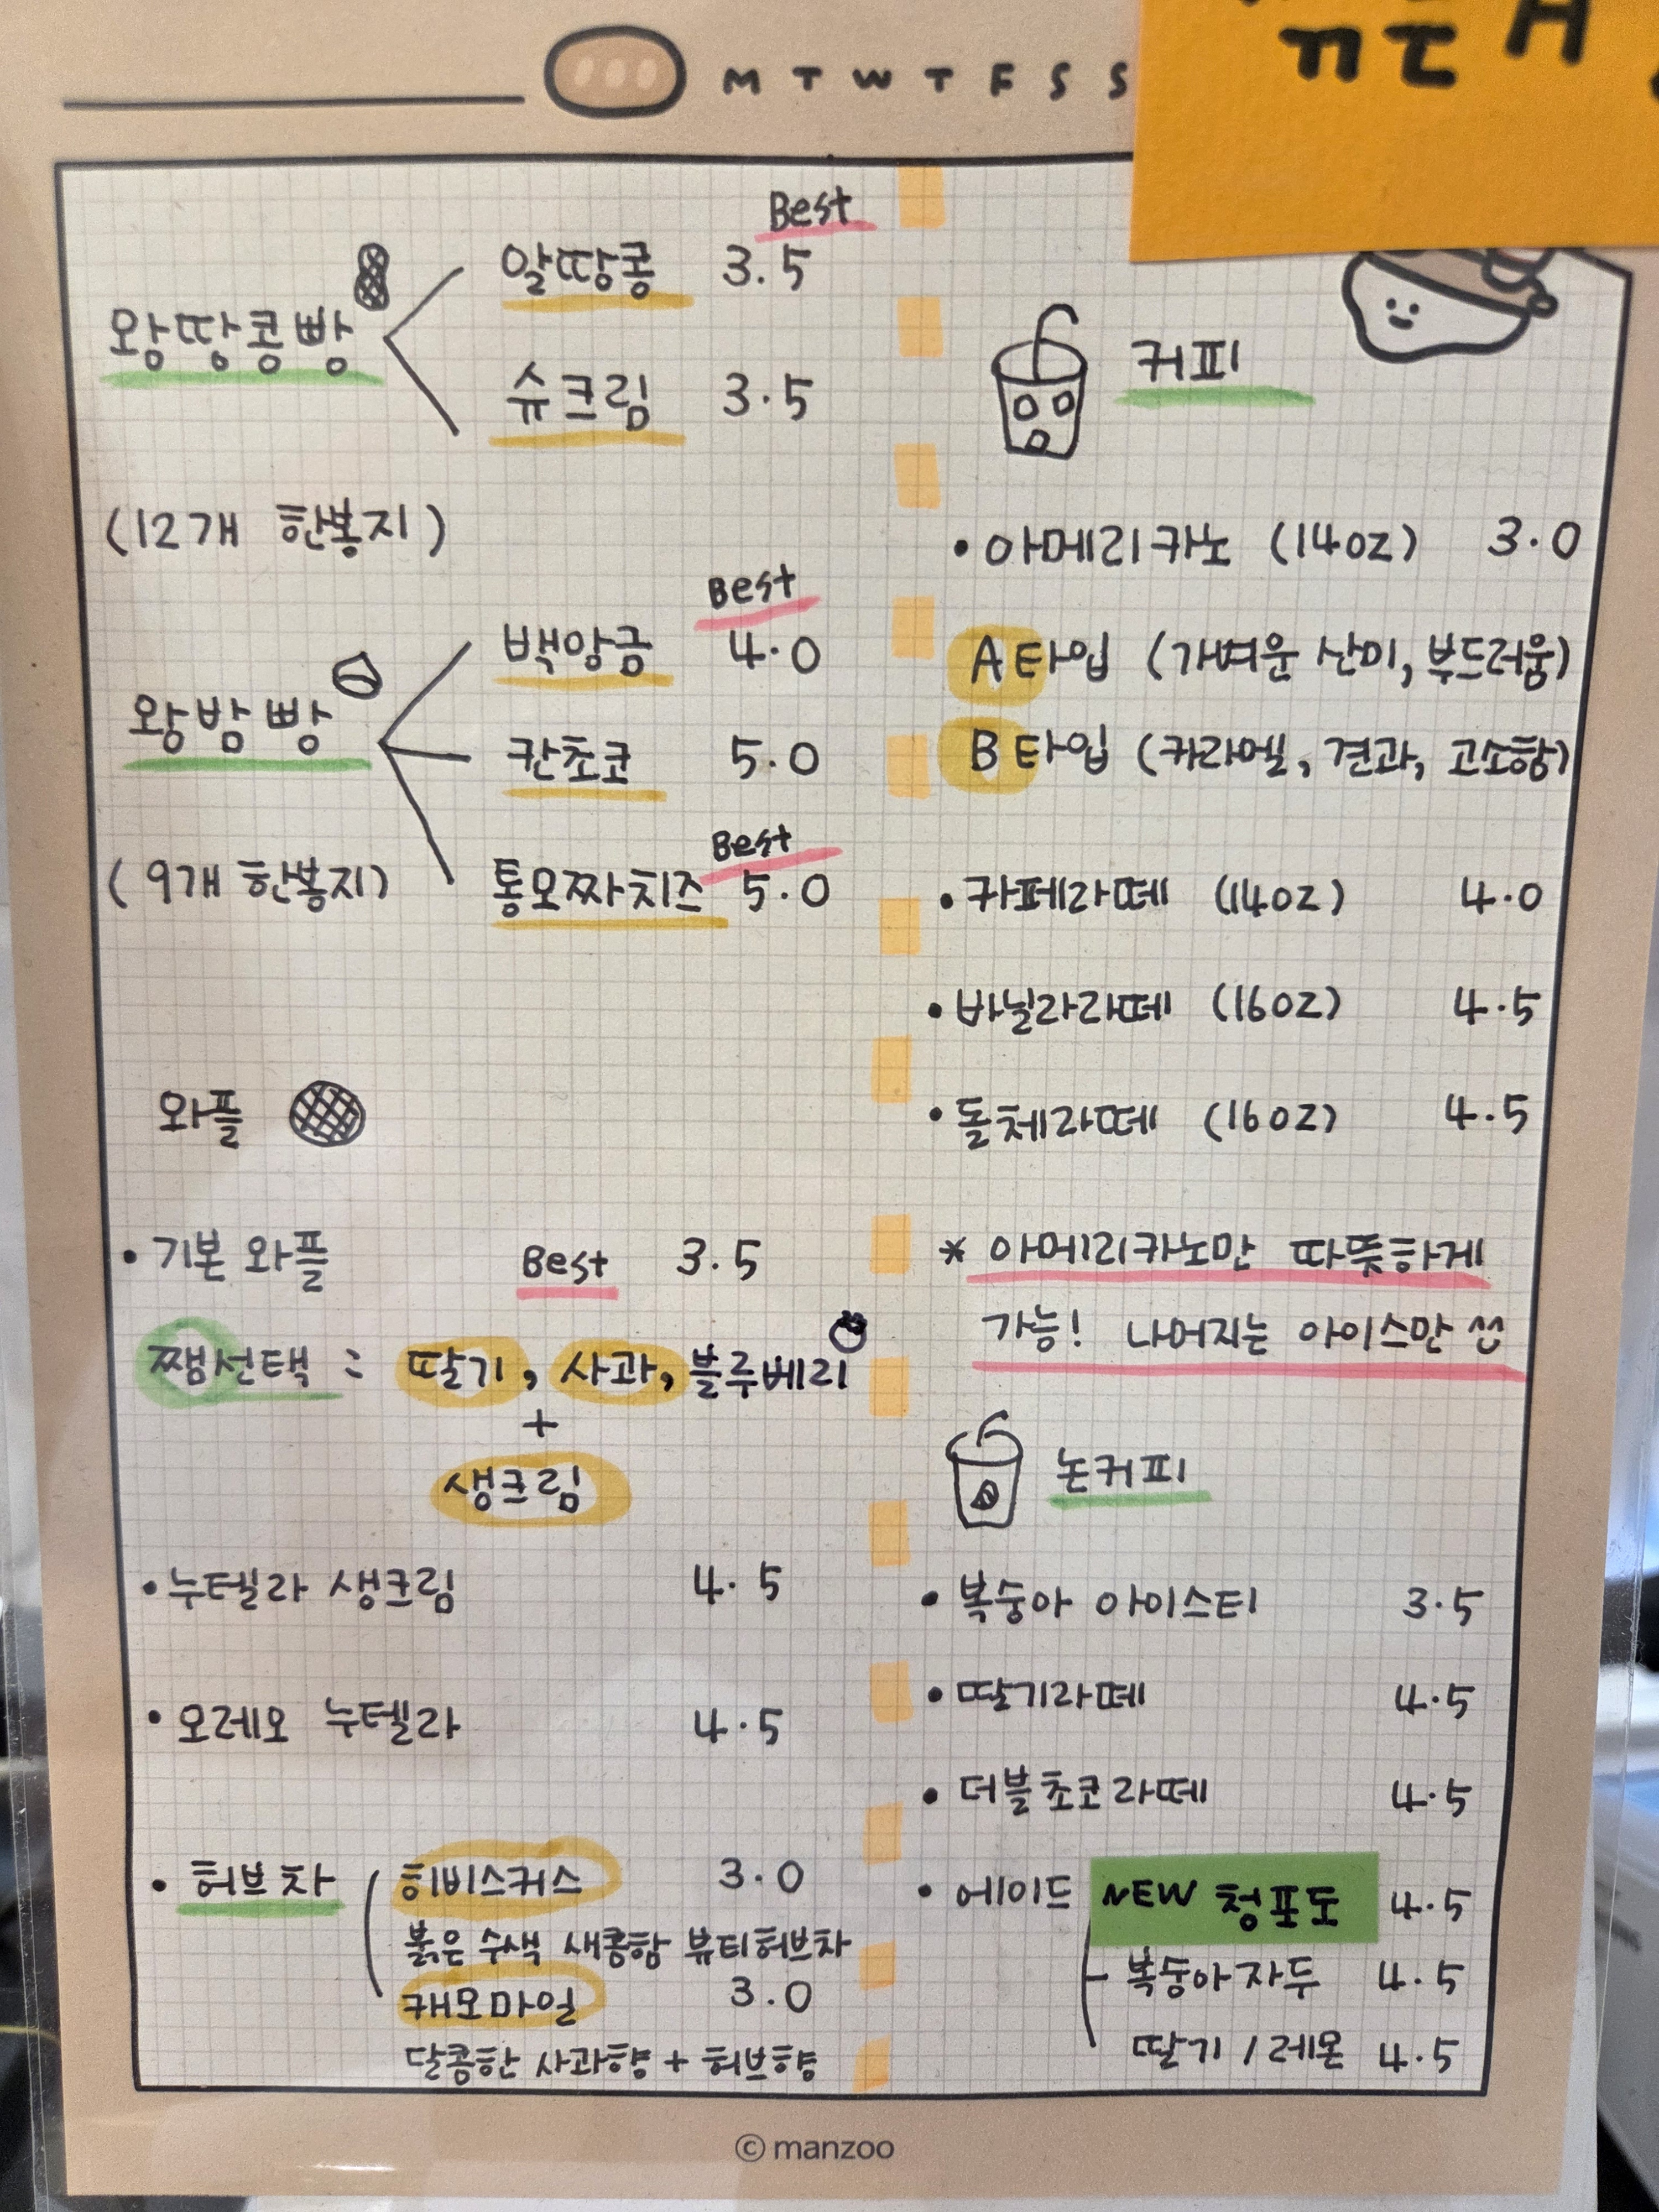 M T W T F S S
Best
알땅콩 3.5
왕땅콩빵
슈크림 3.5
(12개 한봉지)
Best
백앙금 4.0
왕밤빵
칸초코 5.0
Best
(9개 한봉지) 통모짜치즈 5.0
와플
• 기본 와플 Best 3.5
쨈선택 : 딸기, 사과, 블루베리
+
생크림
• 누텔라 생크림 4.5
• 오레오 누텔라 4.5
• 허브차 히비스커스 3.0
붉은 수색 새콤함 뷰티허브차
캐모마일 3.0
달콤한 사과향 + 허브향
커피
• 아메리카노 (14oz) 3.0
A타입 (가벼운 산미, 부드러움)
B타입 (카라멜, 견과, 고소함)
• 카페라떼 (14oz) 4.0
• 바닐라라떼 (16oz) 4.5
• 돌체라떼 (16oz) 4.5
* 아메리카노만 따뜻하게
가능! 나머지는 아이스만
논커피
• 복숭아 아이스티 3.5
• 딸기라떼 4.5
• 더블초코라떼 4.5
• 에이드 NEW 청포도 4.5
복숭아자두 4.5
딸기 / 레몬 4.5
© manzoo